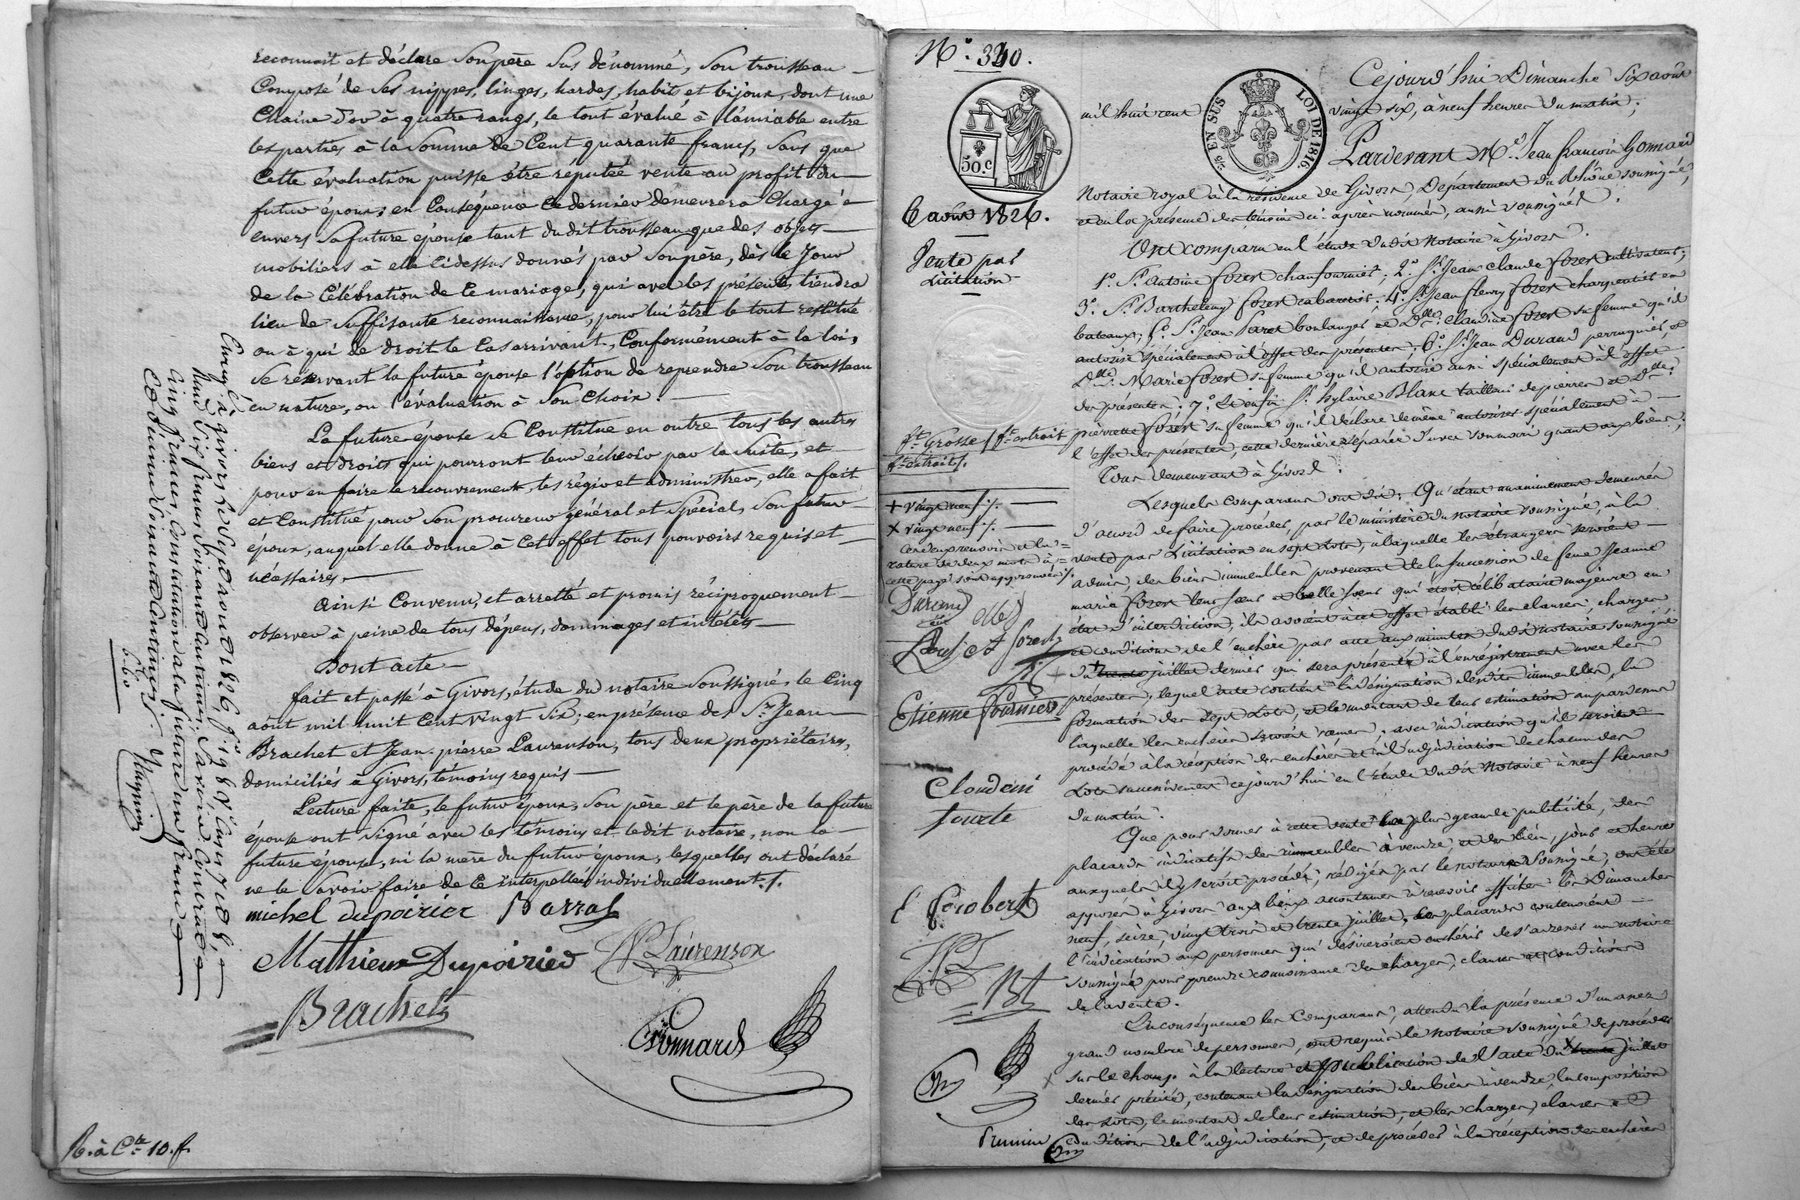 reconnait et déclare son père sus dénommé, son trousseau
Composé de ses nippes, linges, hardes, habits et bijoux, dont une
Chaine d'or à quatre rangs, le tout évalué à l'amiable entre
les parties à la somme de Cent quarante francs, sans que
Cette évaluation puisse être réputée vente au profit du
futur époux; en Conséquence Ce dernier demeurera Chargé
envers sa future épouse tant dudit trousseau que des objets
mobiliers à elle Cidessus donnés par son père, dès le jour
de la Célébration de Ce mariage, qui avec les présentes tiendra
lieu de suffisante reconnaissance, pour lui être le tout restitué
ou à qui de droit le Cas arrivant, Conformément à la loi,
se reservant la future épouse l'option de reprendre son trousseau
en nature, ou l'évaluation à son Choix.
La future épouse se Constitue en outre tous les autres
biens et droits qui pourront leur échéoir par la suite, et
pour en faire le recouvrement, les régir et administrer, elle a fait
et Constitué pour son procureur général et spécial, son futur
époux, auquel elle donne à Cet effet tous pouvoirs requis et
nécessaires.
Ainsi Convenu, et arretté et promis réciproquement
observer à peine de tous dépens, dommages et intérêts
Dont acte
fait et passé à Givors, étude du notaire soussigné, le Cinq
août mil huit Cent vingt six; en présence des Sr. Jean
Brachet et Jean-pierre Laurenson, tous deux propriétaires,
domiciliés à Givors, témoins requis
Lecture faite, le futur époux, son père et le père de la future
épouse ont signé avec les témoins et ledit notaire, non la
future épouse, ni la mère du futur époux, lesquelles ont déclaré
ne le savoir faire de Ce interpellées individuellement./.
michel dupoirier Barral
Mathieu Dupoirier Laurenson
Brachet
Gonnard
R. à Cte. 10. f.
N.° 340.
50 c.
25 EN SUS LOI DE 1816
6 août 1826.
Vente par
Licitation
Cejourd'hui Dimanche six août
mil huit cent vingt six, à neuf heures du matin;
Pardevant Me. Jean françois Gonnard
Notaire royal à la résidence de Givors, Département du Rhône soussigné,
et en la présence des témoins ci-après nommés, aussi soussignés.
Ont comparu en l'étude dudit Notaire à Givors.
1.° Sr. Antoine forest chaufournier; 2.° Sr. Jean Claude forest cultivateur;
3.° Sr. Barthelemy forest cabaretier; 4.° Sr. Jean fleury forest charpentier en
bateaux; 5.° Sr. Jean boulanger et Dlle. Claudine forest sa femme qu'il
autorise spécialement à l'effet des présentes; 6.° Sr. Jean Durand perruquier et
Dlle. Marie forest sa femme qu'il autorise aussi spécialement à l'effet
des présentes; 7.° et enfin Sr. hylaire Blanc tailleur de pierres et Dlle.
pierrette forest sa femme qu'il déclare de même autoriser spécialement à
l'effet des présentes, cette dernière séparée d'avec son mari quant aux biens;
Tous demeurant à Givors.
Lesquels comparans ont dit: Qu'étant unanimement demeurés
d'accord de faire procéder, par le ministère du notaire soussigné, à la
vente par Licitation en sept Lots, à laquelle les étrangers seroient
admis, des biens immeubles provenant de la succession de feue Jeanne
marie forest leur sœur et belle sœur qui étoit célibataire majeure en
état d'interdiction, ils avoient à cet effet établi les clauses, charges
et conditions de l'enchère par acte aux minutes dudit notaire soussigné
du + trente juillet dernier qui sera présenté à l'enrégistrement avec les
présentes, lequel acte contient la désignation desdits immeubles, la
formation des sept Lots, et le montant de leur estimation au pardessus
laquelle les enchères seroient reçues; avec indication qu'il seroit
procédé à la réception des enchères et à l'adjudication de chacun des
Lots successivement cejourd'hui en l'étude dudit Notaire à neuf heures
du matin.
Que pour donner à cette vente la plus grande publicité, des
placards indicatifs des immeubles à vendre, et des lieu, jour et heure
auxquels il y seroit procédé, rédigés par le notaire soussigné, ont été
apposés à Givors aux lieux accoutumés à recevoir affiches les Dimanches
neuf, seize, vingt trois et trente juillet; les placards contenoient
l'indication aux personnes qui désireroient enchérir de s'adresser au notaire
soussigné pour prendre connoissance des charges, clauses et conditions
de la vente.
En conséquence les Comparans, attendu la présence d'un assez
grand nombre de personnes, ont requis le notaire soussigné de procéder
sur le champ à la lecture et publication de l'acte du x trente juillet
dernier précité, contenant la désignation des biens à vendre, la composition
des Lots, le montant de leur estimation, et les charges, clauses et
conditions de l'adjudication; et de procéder à la réception des enchères
ft. Grosse / ft. extrait
ft. extrait /.
+ vingt neuf /.
x vingt neuf /.
Etienne fournier
Claudine